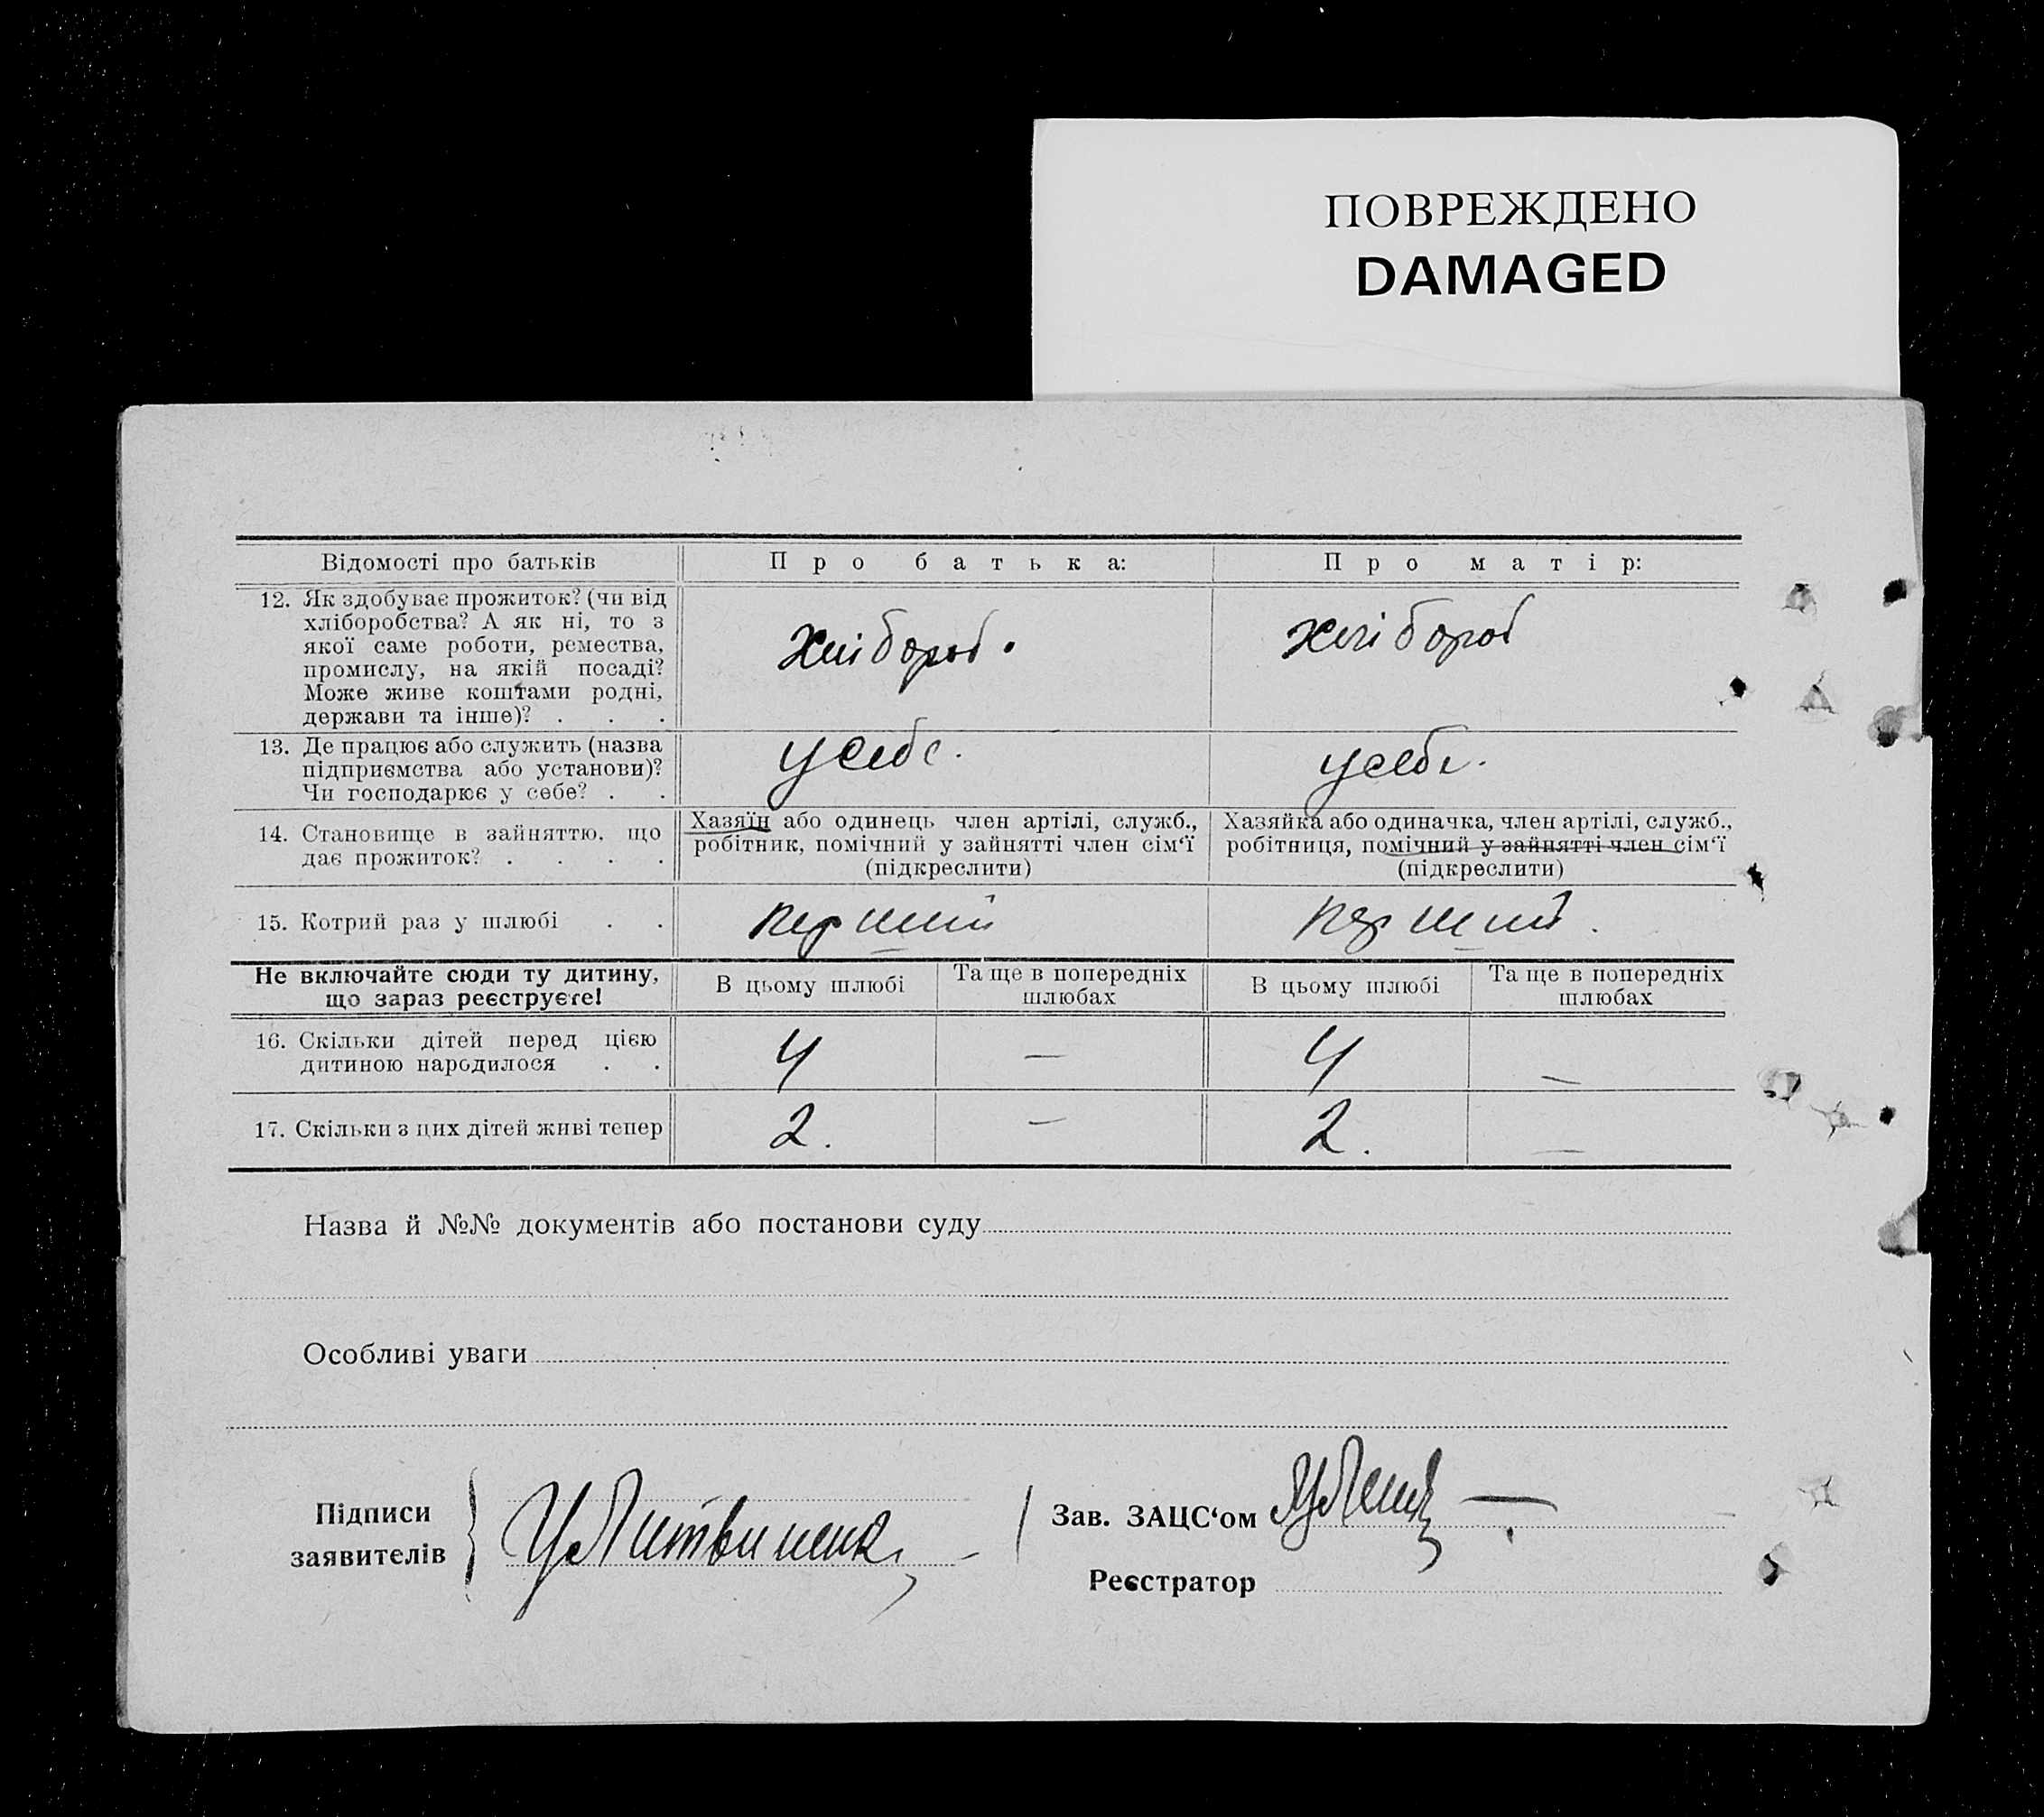 ПОВРЕЖДЕНО
DAMAGED
Відомості про батьків
Про батька:
Про матір:
12. Як здобуває прожиток? (чи від
хліборобства? А як ні, то з
якої саме роботи, ремества,
промислу, на якій посаді?
Може живе коштами родні,
держави та інше)? . . .
хлібороб.
хлібороб
13. Де працює або служить (назва
підприємства або установи)?
Чи господарює у себе? . .
у себе.
у себе.
14. Становище в зайняттю, що
дає прожиток? . . . .
Хазяїн або одинець член артілі, служб.,
робітник, помічний у зайнятті член сім'ї
(підкреслити)
Хазяйка або одиначка, член артілі, служб.,
робітниця, помічний у зайнятті член сім'ї
(підкреслити)
15. Котрий раз у шлюбі . .
перший
перший.
Не включайте сюди ту дитину,
що зараз реєструєте!
В цьому шлюбі
Та ще в попередніх
шлюбах
В цьому шлюбі
Та ще в попередніх
шлюбах
16. Скільки дітей перед цією
дитиною народилося . .
4
—
4
—
17. Скільки з цих дітей живі тепер
2.
—
2.
—
Назва й №№ документів або постанови суду
Особливі уваги
Підписи
заявителів
Литвиненк
Зав. ЗАЦС‘ом
Реєстратор